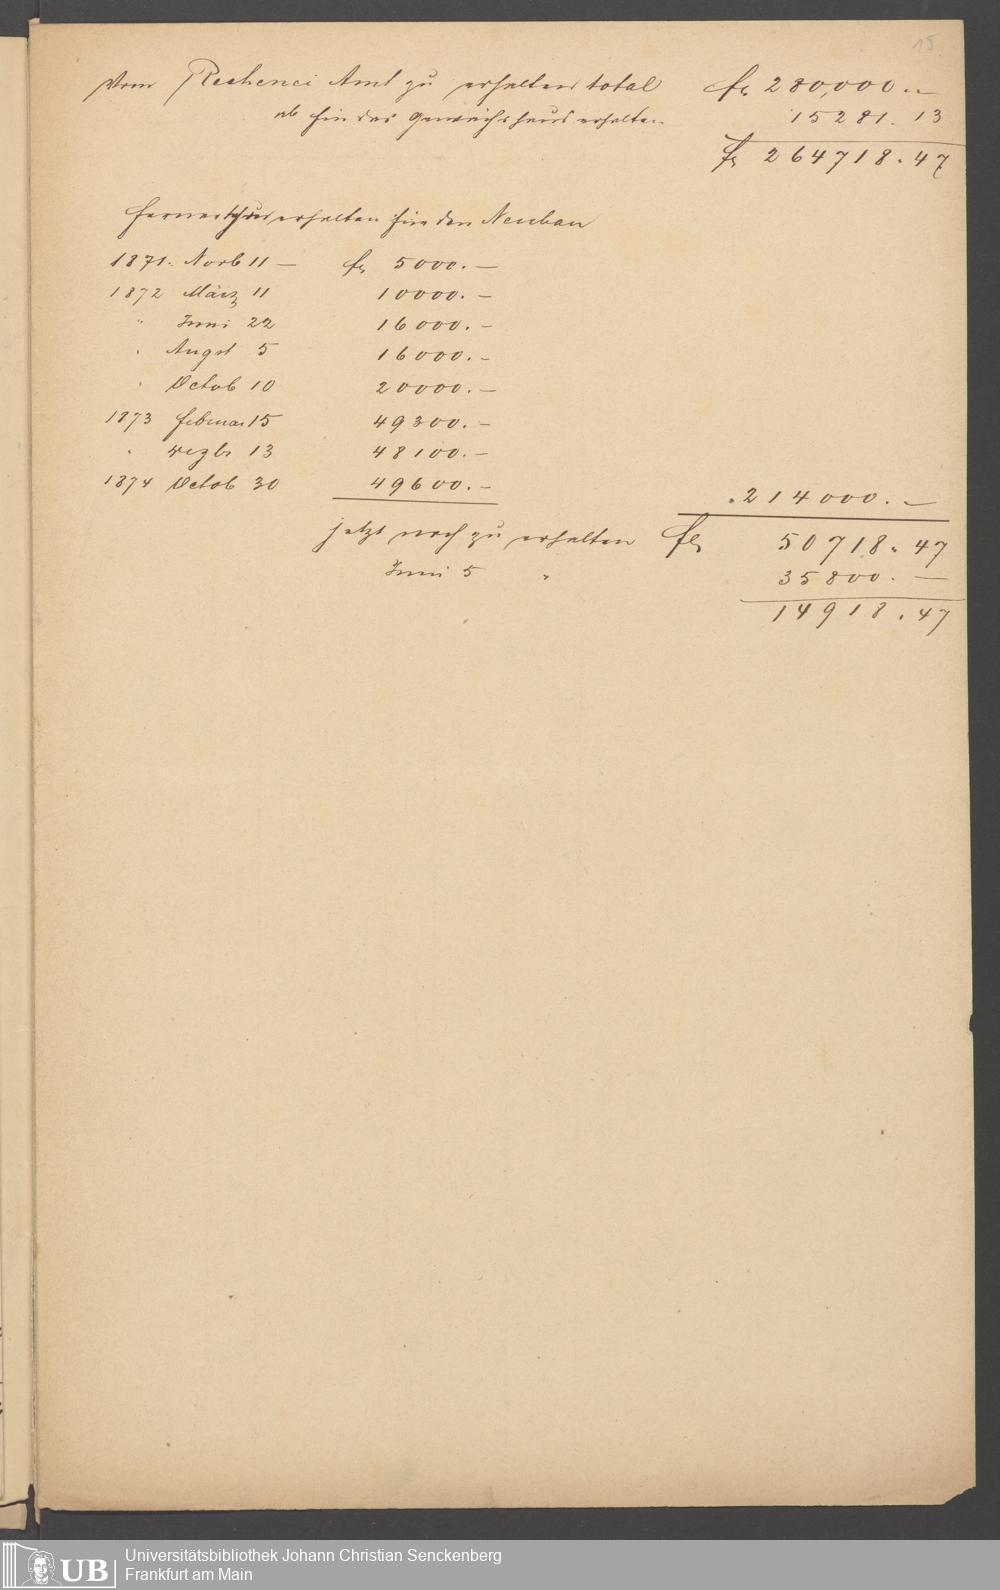 15
Vom Rechenei Amt zu erhalten total fl 280,000.—
ab für das Gewächshaus erhalten 15281.13
fl 264718.47
ferner erhalten für den Neubau
1871. Novb 11 — fl 5000.—
1872 März 11 10000.—
" Juni 22 16000.—
" Augst 5 16000.—
" Octob 10 20000.—
1873 februar 15 49300.—
" Dezbr 13 48100.—
1874 Octob 30 49600.— 214000.—
jetzt noch zu erhalten fl 50718.47
Juni 5 " 35800.—
14918.47
UB Universitätsbibliothek Johann Christian Senckenberg
Frankfurt am Main